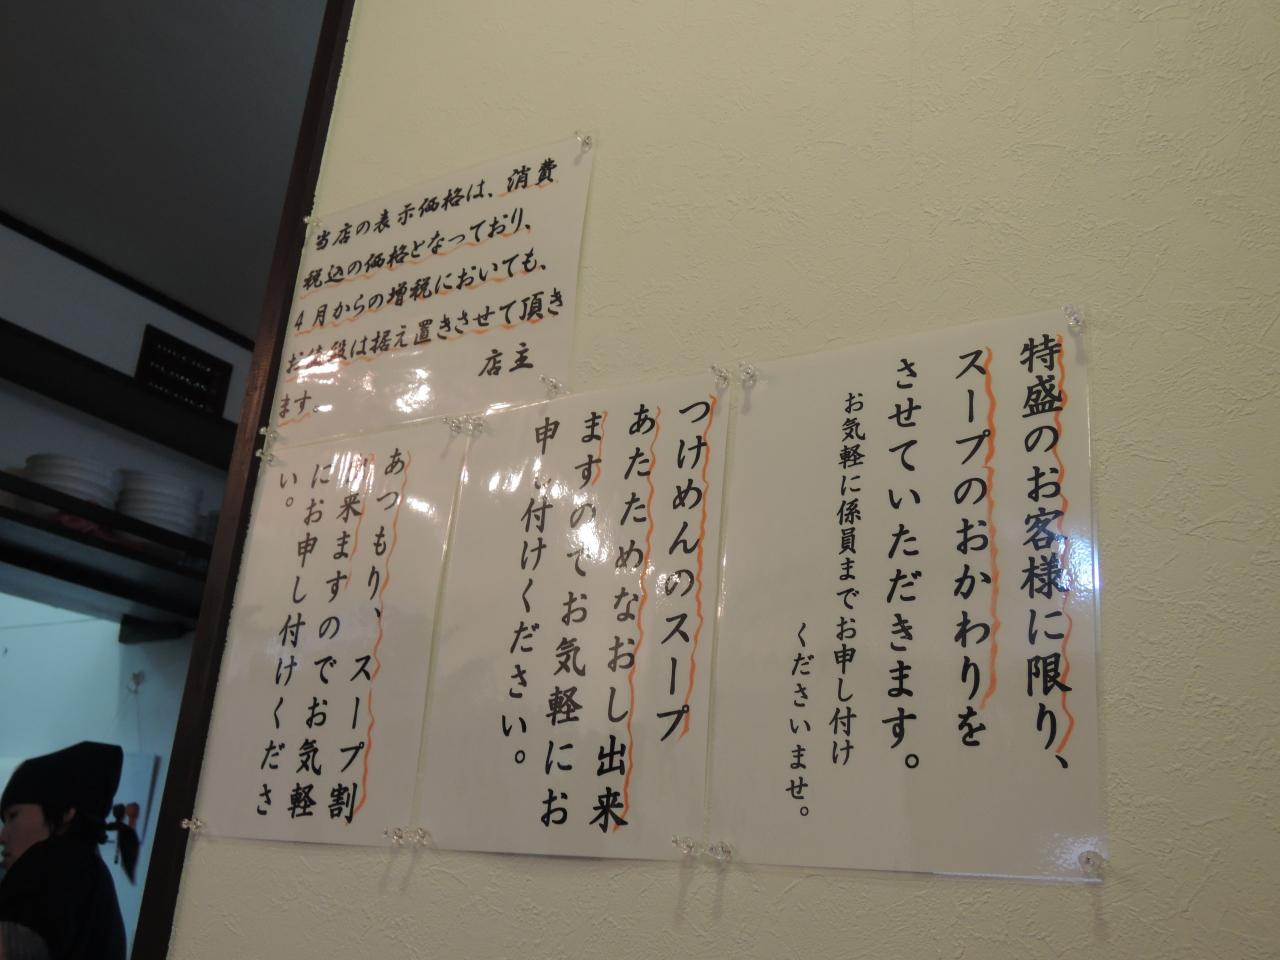 当店の表示価格は、消費
税込の価格となっており、
4月からの増税においても、
お値段は据え置きさせて頂き
ます。
店主
特盛のお客様に限り、
スープのおかわりを
させていただきます。
お気軽に係員までお申し付け
くださいませ。
つけめんのスープ
あたためなおし出来
ますのでお気軽にお
申し付けください。
あつもり、スープ割
出来ますのでお気軽
にお申し付けくださ
い。